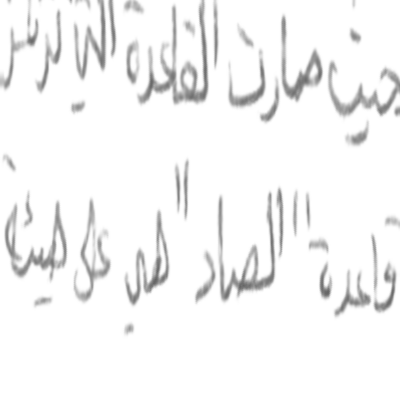 حيث صارت القاعدة التي
قاعدة "الصاد" هي على هيئة